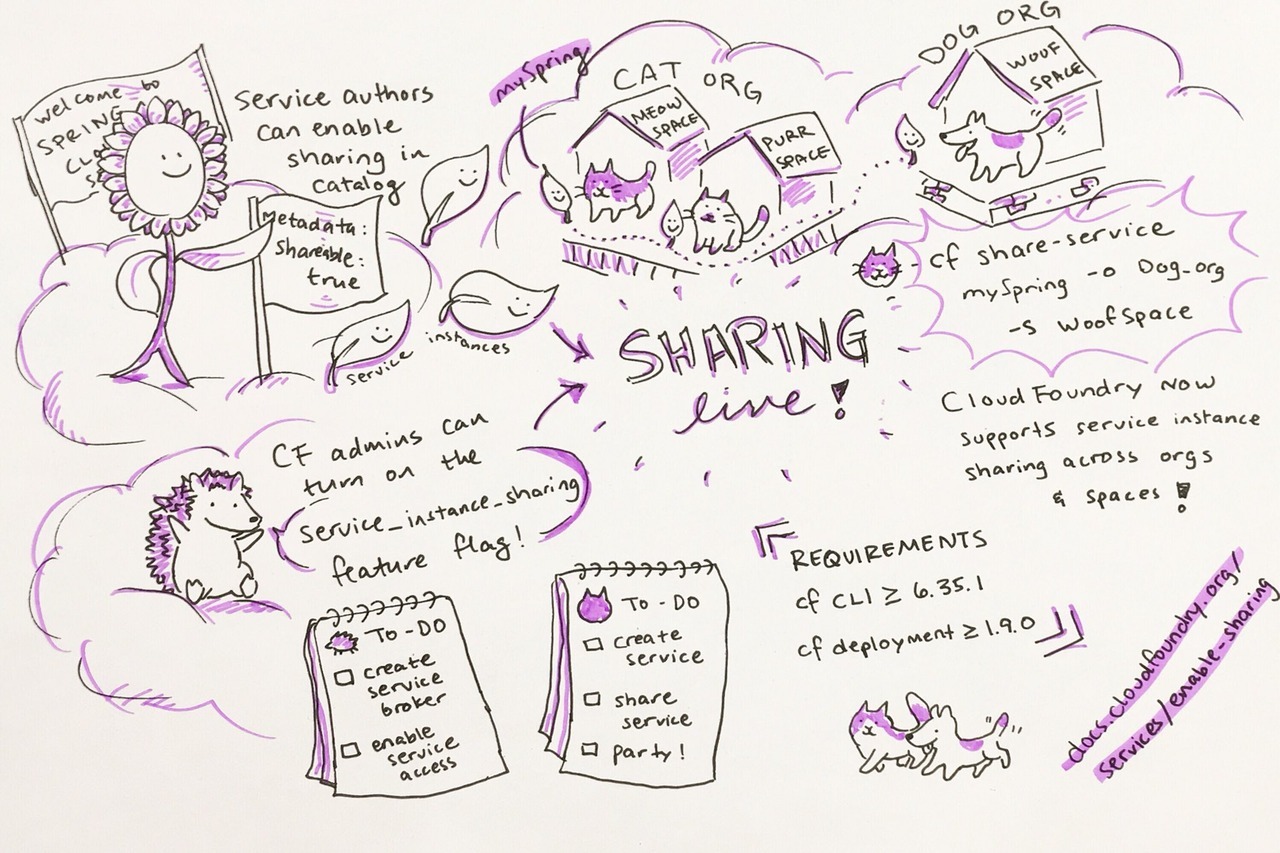 welcome to
SPRING
service authors
can enable
sharing in
catalog
metadata:
shareable:
true
service
instances
mySpring
CAT ORG
MEOW
SPACE
PURR
SPACE
DOG ORG
WOOF
SPACE
cf share-service
mySpring -o Dog_org
-s WoofSpace
SHARING
live!
Cloud Foundry now
supports service instance
sharing across orgs
& spaces!
CF admins can
turn on the
service_instance_sharing
feature flag!
TO-DO
create
service
broker
enable
service
access
TO-DO
create
service
share
service
party!
REQUIREMENTS
cf CLI ≥ 6.35.1
cf deployment ≥ 1.9.0
docs.cloudfoundry.org/
services/enable-sharing